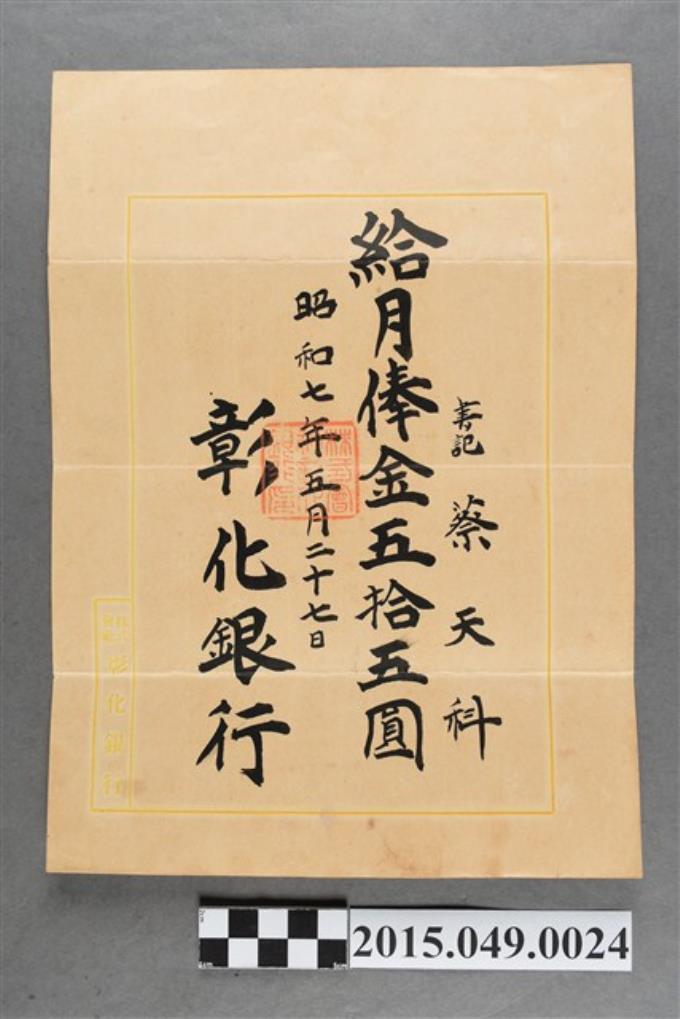 書記 蔡天科
給月俸金五拾五圓
昭和七年五月二十七日
彰化銀行
株式會社
彰化銀行
2015.049.0024